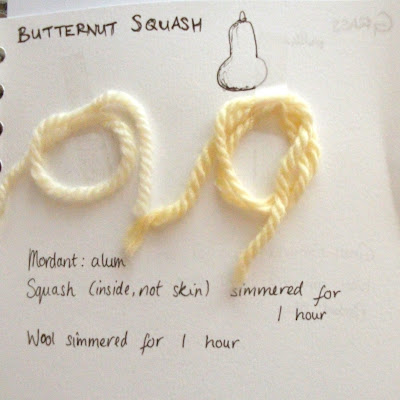 BUTTERNUT SQUASH
Mordant: alum
Squash (inside, not skin) simmered for
1 hour
Wool simmered for 1 hour